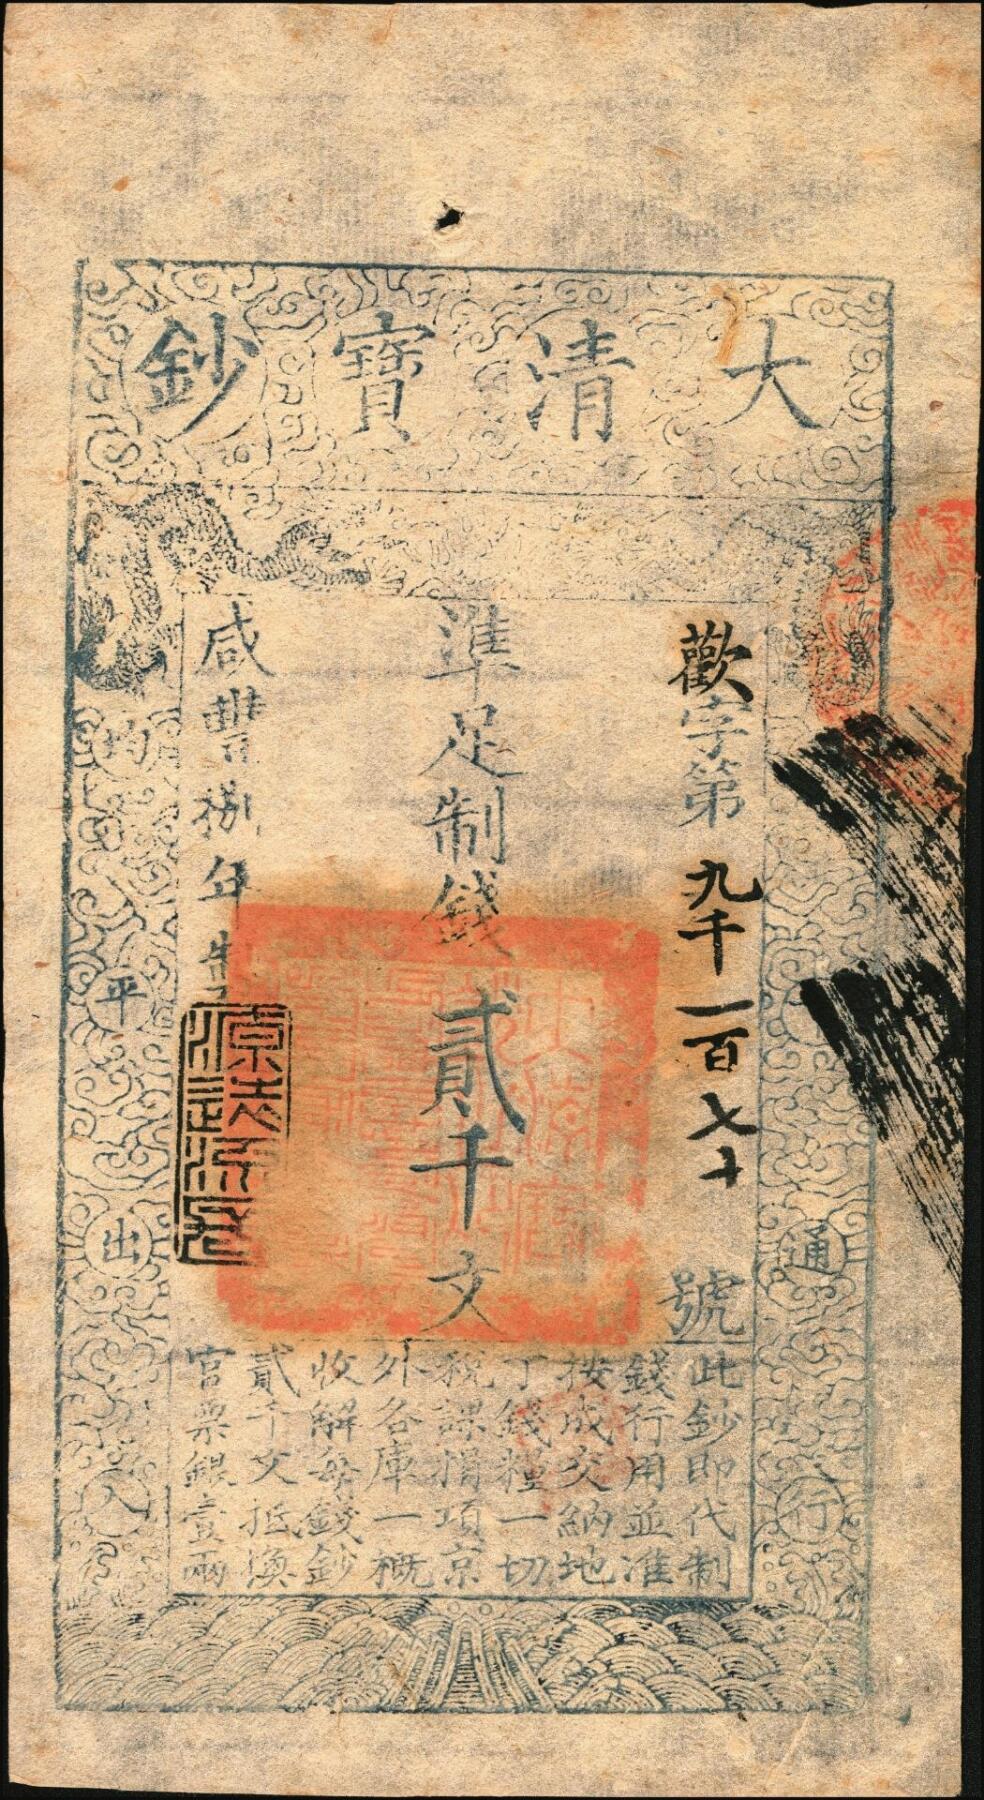 大清寶鈔
歡字第九千一百七十號
準足制錢貳千文
咸豐捌年製
此鈔即代制
錢行用並准
按成交納地
丁錢糧一切
稅課捐項京
外各庫一概
收解每錢鈔
貳千文抵換
官票銀壹兩
通行
均平出入